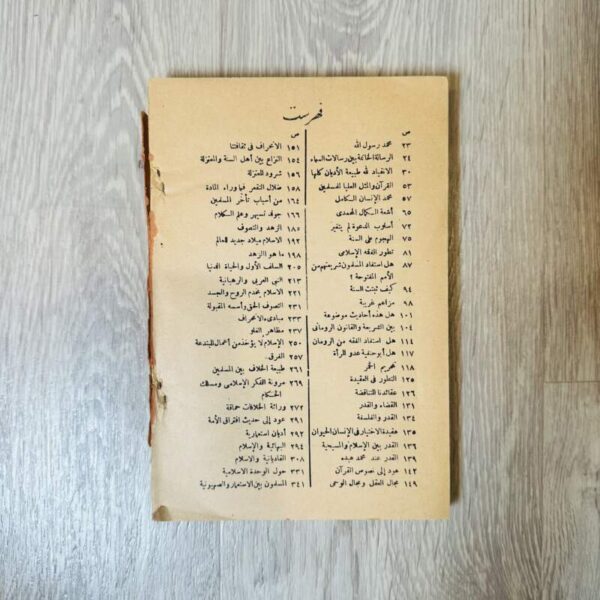 فهرست
ص
٢٣ محمد رسول الله
٢٤ الرسالة الخاتمة بين رسالات السماء
٣٠ الانقياد لله طبيعة الأديان كلها
٥٣ القرآن والمثل العليا للمسلمين
٥٧ محمد الإنسان الكامل
٦٥ أشعة الكمال المحمدى
٧٢ أسلوب الدعوة لم يتغير
٧٥ الهجوم على السنة
٨١ تطور الفقه الإسلامى
٨٧ هل استفاد المسلمون شريعتهم من
الأمم المفتوحة ؟
٩٤ كيف ثبتت السنة
٩٨ مزاعم غريبة
١٠١ هل هذه أحاديث موضوعة
١٠٤ بين الشريعة والقانون الرومانى
١١٤ هل استفاد الفقه من الرومان
١١٧ هل أبو حنيفة عدو للرأة
١١٨ تحريم الخمر
١٢٥ التطور فى العقيدة
١٢٦ عقائدنا المتناقضة
١٣١ القضاء والقدر
١٣٤ القدر والفلسفة
١٣٥ عقيدة الاختيار فى الإنسان الحيوان
١٣٦ القدر بين الإسلام والمسيحية
١٣٩ القدر عند محمد عبده
١٤٢ عود إلى نصوص القرآن
١٤٩ مجال العقل ومجال الوحى
ص
١٥١ الانحراف فى ثقافتنا
١٥٤ النزاع بين أهل السنة والمعتزلة
١٥٦ شرود المعتزلة
١٥٨ ضلال التقعر فيما وراء المادة
١٦٤ من أسباب تأخر المسلمين
١٦٦ جولد تسيهر وعلم الكلام
١٨٥ الزهد والتصوف
١٩٢ الاسلام ميلاد جديد للعالم
١٩٨ ما هو الزهد
٢٠٥ السلف الأول والحياة الدنيا
٢١٣ النبى العربى والرهبانية
٢٢١ الاسلام يخدم الروح والجسد
٢٣١ التصوف الحق وأسسه المقبولة
٢٣٣ مبادىء الانحراف
٢٣٧ مظاهر الغلو
٢٥٠ الإسلام لا يؤخذ من أعمال المبتدعة
٢٥٧ الفرق
٢٦١ طبيعة الخلاف بين المسلمين
٢٦٩ مرونة الفكر الإسلامى ومسلك
الحكام
٢٧٢ وراثة الخلافات حماقة
٢٩١ عود إلى حديث افتراق الأمة
٢٩٢ أديان استعمارية
٢٩٤ البهائية والإسلام
٣٠٨ القاديانية والاسلام
٣٣١ حول الوحدة الاسلامية
٣٤١ المسلمون بين الاستعمار والصهيونية